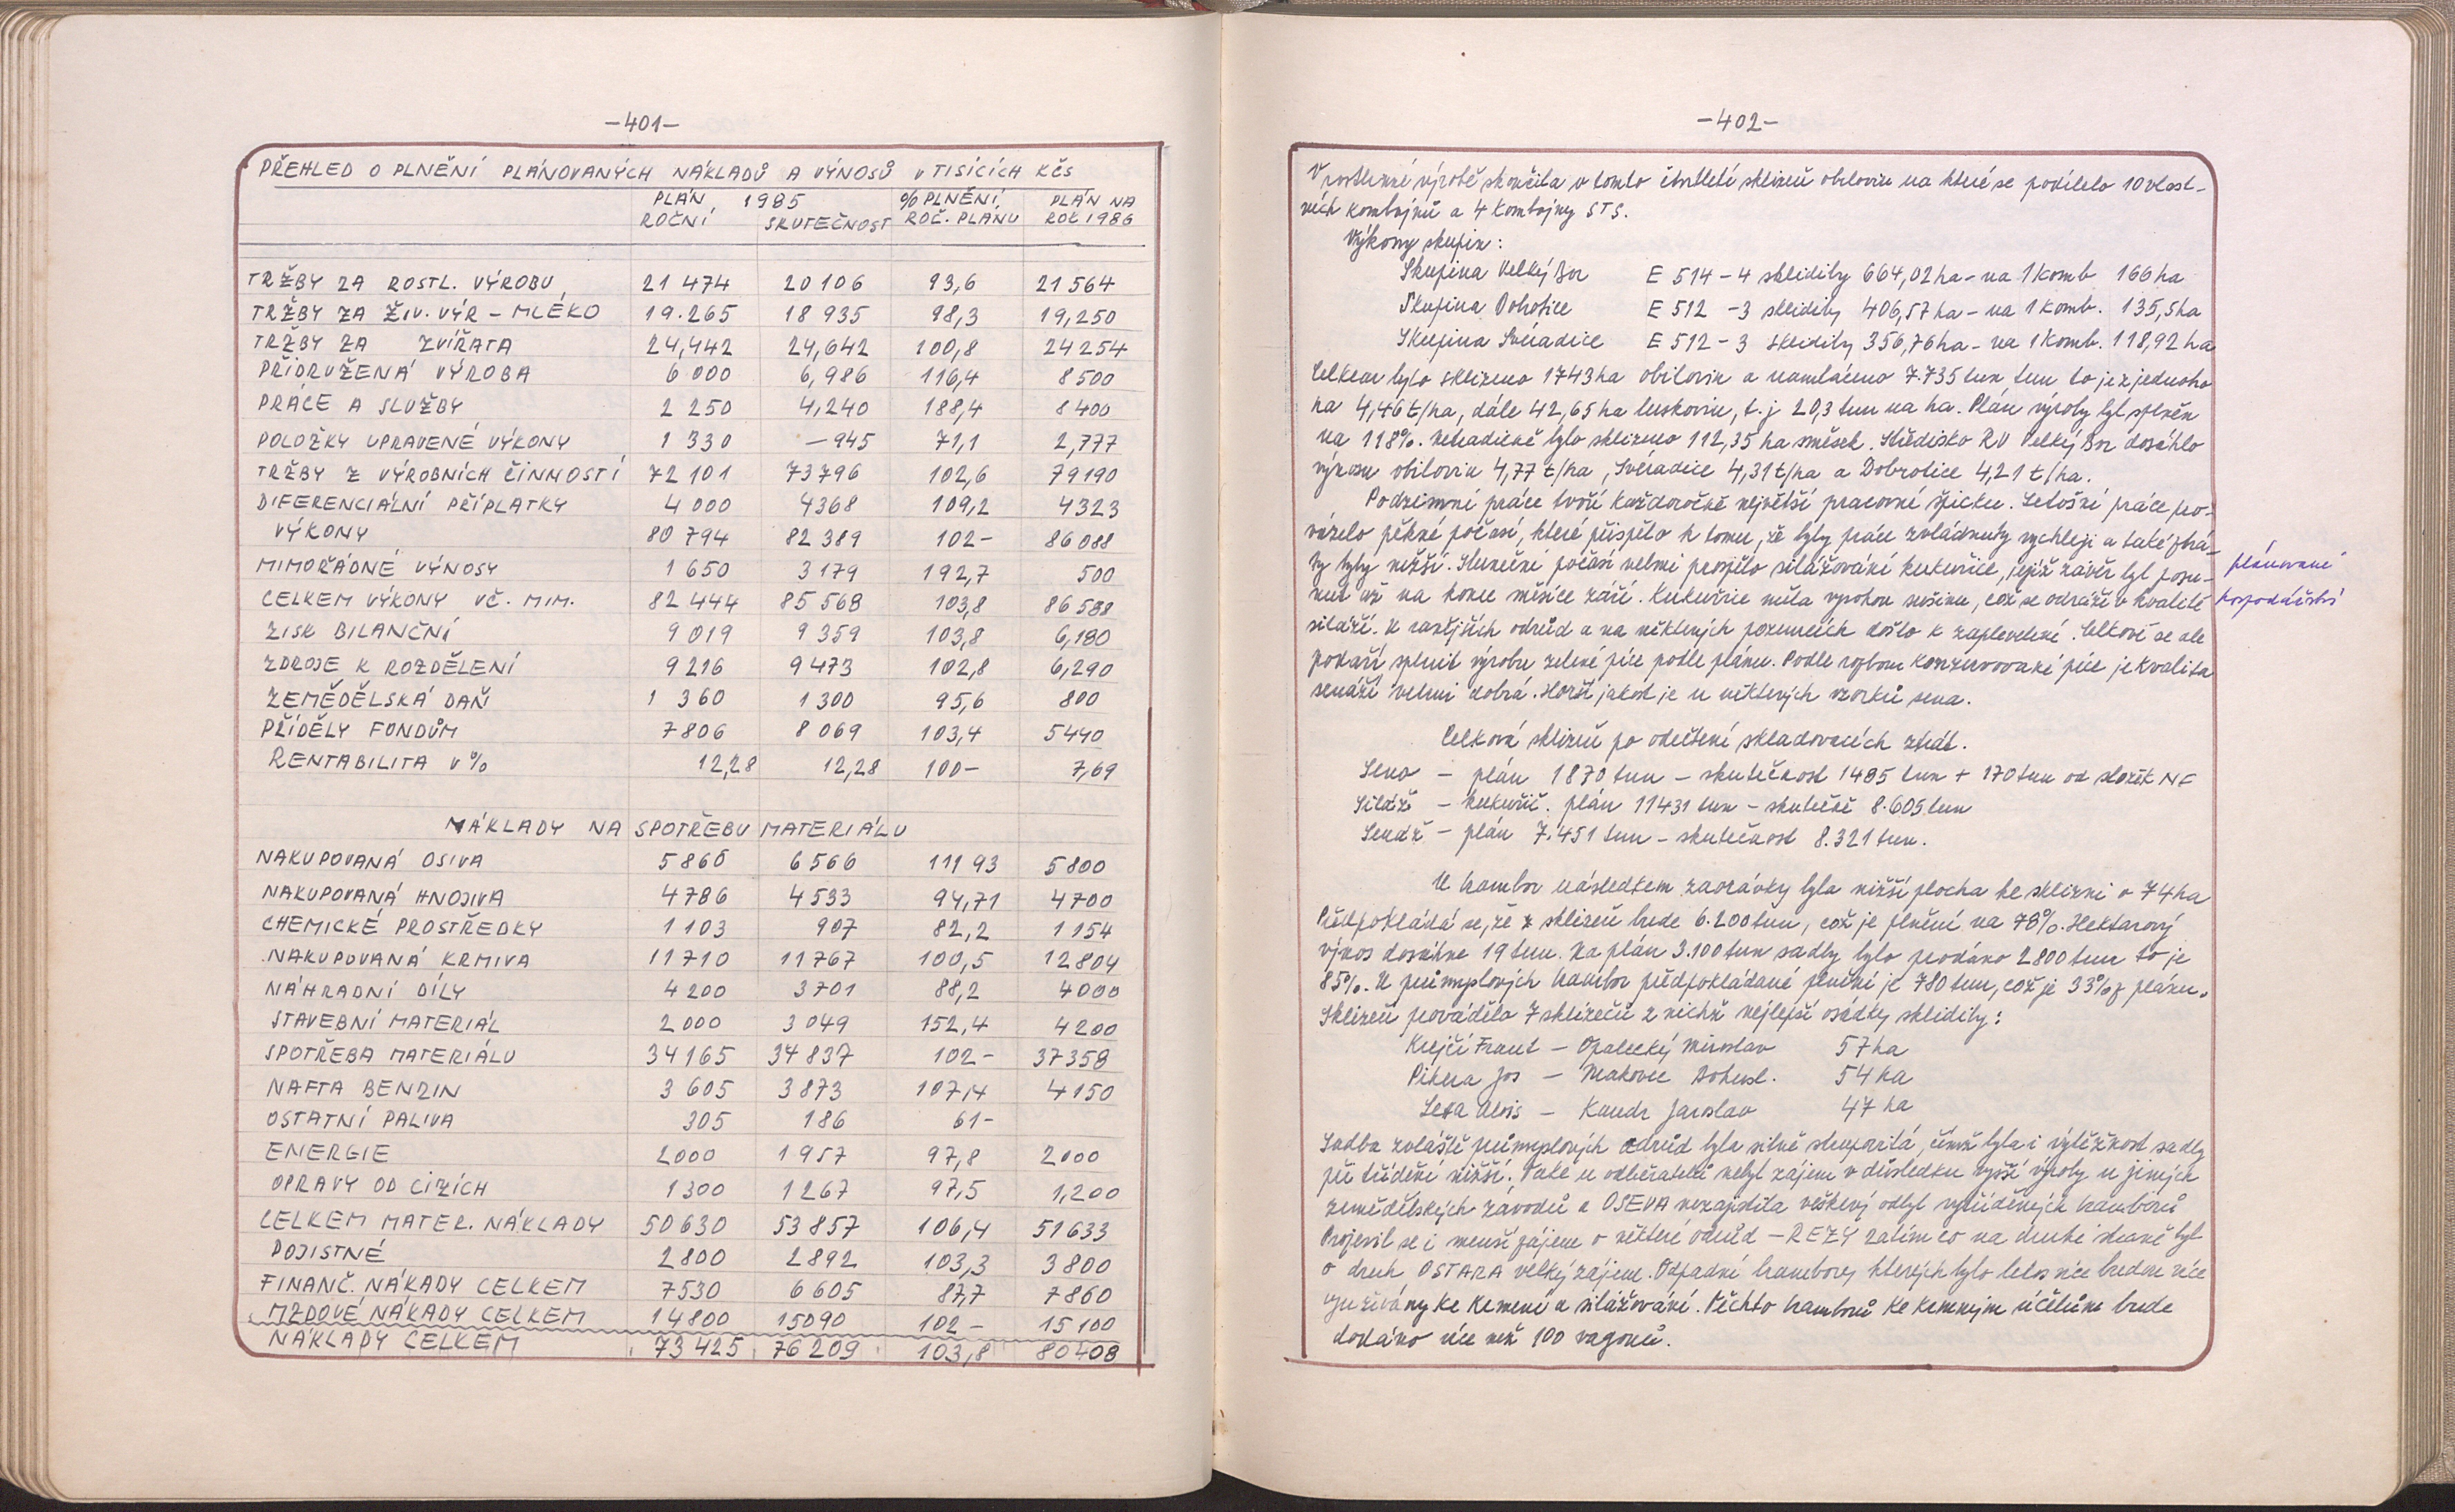 -401-
PŘEHLED O PLNĚNÍ PLÁNOVANÝCH NÁKLADŮ A VÝNOSŮ V TISÍCÍCH KČS
PLÁN 1985 % PLNĚNÍ PLÁN NA
ROČNÍ SKUTEČNOST ROČ. PLÁNU ROK 1986
TRŽBY ZA ROSTL. VÝROBU 21 474 20 106 93,6 21 564
TRŽBY ZA ŽIV. VÝR - MLÉKO 19.265 18 935 98,3 19,250
TRŽBY ZA ZVÍŘATA 24,442 24,642 100,8 24 254
PŘIDRUŽENÁ VÝROBA 6 000 6,986 116,4 8 500
PRÁCE A SLUŽBY 2 250 4,240 188,4 8 400
POLOŽKY UPRAVENÉ VÝKONY 1 330 -945 71,1 2,777
TRŽBY Z VÝROBNÍCH ČINNOSTÍ 72 101 73 796 102,6 79 190
DIFERENCIÁLNÍ PŘÍPLATKY 4 000 4368 109,2 4323
VÝKONY 80 794 82 389 102- 86 088
MIMOŘÁDNÉ VÝNOSY 1 650 3 179 192,7 500
CELKEM VÝKONY VČ. MIM. 82 444 85 568 103,8 86 588
ZISK BILANČNÍ 9 019 9 359 103,8 6,180
ZDROJE K ROZDĚLENÍ 9 216 9 473 102,8 6,290
ZEMĚDĚLSKÁ DAŇ 1 360 1 300 95,6 800
PŘÍDĚLY FONDŮM 7 806 8 069 103,4 5490
RENTABILITA V % 12,28 12,28 100- 7,69
NÁKLADY NA SPOTŘEBU MATERIÁLU
NAKUPOVANÁ OSIVA 5 866 6 566 111 93 5 800
NAKUPOVANÁ HNOJIVA 4786 4 533 94,71 4700
CHEMICKÉ PROSTŘEDKY 1 103 907 82,2 1 154
NAKUPOVANÁ KRMIVA 11 710 11 767 100,5 12 804
NÁHRADNÍ DÍLY 4 200 3 701 88,2 4000
STAVEBNÍ MATERIÁL 2 000 3 049 152,4 4 200
SPOTŘEBA MATERIÁLU 34 165 34 837 102- 37 358
NAFTA BENZIN 3 605 3 873 107,4 4 150
OSTATNÍ PALIVA 305 186 61-
ENERGIE 2000 1 957 97,8 2000
OPRAVY OD CIZÍCH 1 300 1 267 97,5 1,200
CELKEM MATER. NÁKLADY 50 630 53 857 106,4 51 633
POJISTNÉ 2 800 2 892 103,3 3 800
FINANČ. NÁKADY CELKEM 7530 6 605 87,7 7 860
MZDOVÉ NÁKADY CELKEM 14 800 15090 102- 15 100
NÁKLADY CELKEM 73 425 76 209 103,8 80 408
-402-
V rostlinné výrobě skončila v tomto čtvrtletí sklizeň obilovin na které se podílelo 10 vlast-
ních kombajnů a 4 kombajny STS.
Výkony skupin:
Skupina Velký Bor E 514 - 4 sklidily 664,02 ha - na 1 komb 166 ha
Skupina Dobrotice E 512 - 3 sklidily 406,57 ha - na 1 komb. 135,5 ha
Skupina Svéradice E 512 - 3 sklidily 356,76 ha - na 1 komb. 118,92 ha
Celkem bylo sklizeno 1743 ha obilovin a namláceno 7.735 tun tun to je z jednoho
ha 4,46 t/ha, dále 42,65 ha luskovin, t.j 20,3 tun na ha. Plán výroby byl splněn
na 118%. Mimo bylo sklizeno 112,35 ha směsek. Středisko RV Velký Bor dosáhlo
výnosu obilovin 4,77 t/ha, Svéradice 4,31 t/ha a Dobrotice 4,21 t/ha.
Podzimní práce tvoří každoročně největší pracovní špičku. Letošní práce pro-
vázelo pěkné počasí, které přispělo k tomu, že byly práce zvládnuty rychleji a také ztrá-
ty byly nižší. Sluneční počasí velmi prospělo silážování kukuřice, jejíž závěr byl posu- plánované
nut až na konec měsíce září. Kukuřice měla vysokou sušinu, což se odráží v kvalitě hospodářství
siláží. U ranějších odrůd a na některých pozemcích došlo k zaplevelení. Celkově se ale
podaří splnit výrobu zelené píce podle plánu. Podle rozboru konzervované píce je kvalita
senáží velmi dobrá. Horší jakost je u některých vzorků sena.
Celková sklizeň po odečtení skladovacích ztrát.
Seno - plán 1870 tun - skutečnost 1485 tun + 170 tun od složek NF
Siláž - kukuřič. plán 11431 tun - skutečně 8.605 tun
Senáž - plán 7.451 tun - skutečnost 8.321 tun.
U brambor následkem zaorávky byla nižší plocha ke sklizni o 74 ha
Předpokládá se, že z sklizeň bude 6.200 tun, což je plnění na 78%. Hektarový
výnos dosáhne 19 tun. Na plán 3.100 tun sadby bylo prodáno 2800 tun to je
85%. U průmyslových brambor předpokládané plnění je 780 tun, což je 33% z plánu.
Sklizeň provádělo 7 sklízečů z nichž nejlepší osádky sklidily:
Krejčí Frant - Opalecký Miroslav 57 ha
Pikera Jos - Makovec Bohusl. 54 ha
Lexa Alois - Kandr Jaroslav 47 ha
Sadba zvláště průmyslových odrůd byla silně strupovitá, čímž byla i výtěžnost sadby
při třídění nižší. Také u odběratelů nebyl zájem v důsledku vyšší výroby u jiných
zemědělských závodů a OSEVA nezajistila veškerý odbyt vytříděných brambor
Projevil se i menší zájem o některé odrůd - REZY zatím co na druhé straně byl
o druh OSTARA velký zájem. Odpadní brambory kterých bylo letos více budou více
využívány ke krmení a silážování. Těchto brambor ke krmným účelům bude
dodáno více než 100 vagonů.